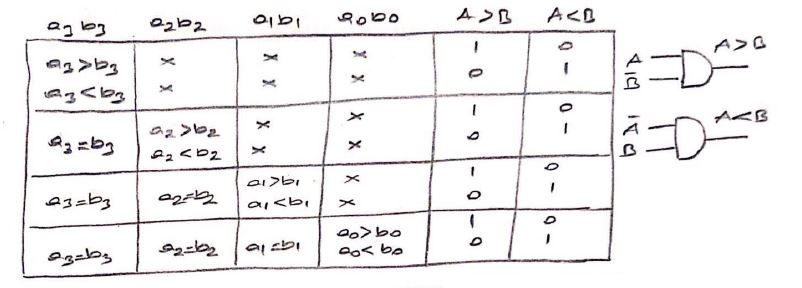 a3 b3 a2b2 a1b1 a0b0 A>B A<B
a3>b3 × × × 1 0
a3<b3 × × × 0 1
a3=b3 a2>b2 × × 1 0
a2<b2 × × 0 1
a3=b3 a2=b2 a1>b1 × 1 0
a1<b1 × 0 1
a3=b3 a2=b2 a1=b1 a0>b0 1 0
a0<b0 0 1
A A>B
B̅
A̅ A<B
B